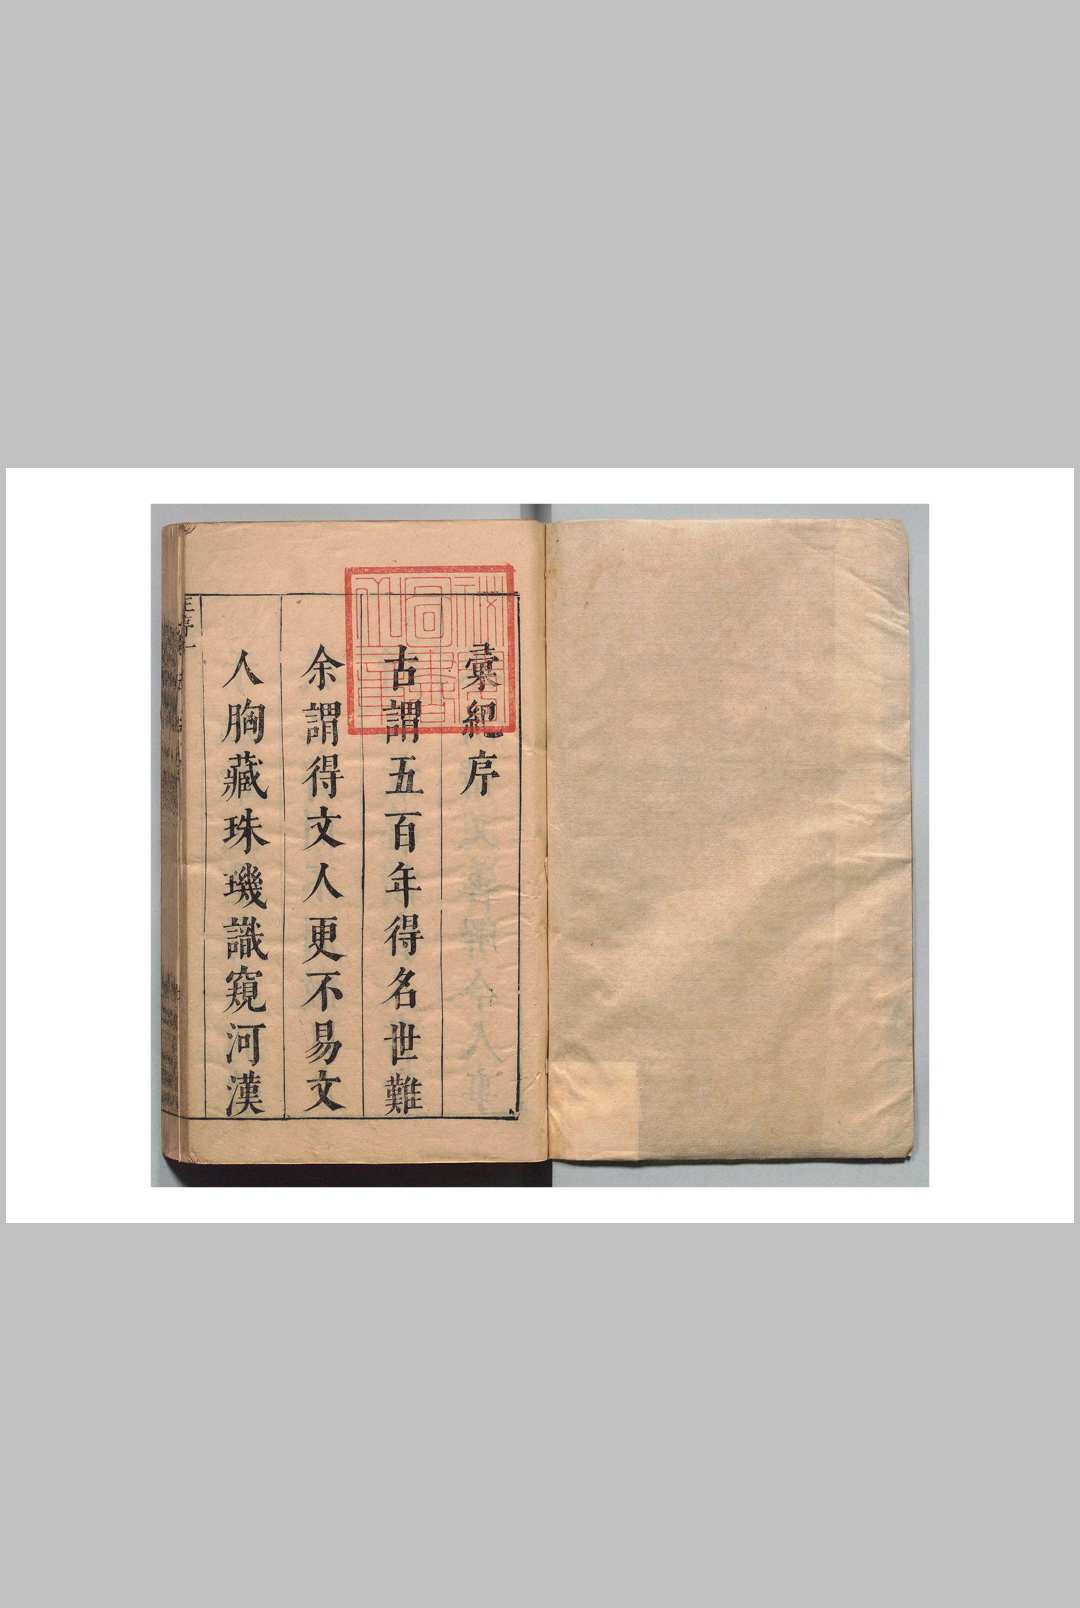 彙紀序
古謂五百年得名世難
余謂得文人更不易文
人胸藏珠璣識窺河漢